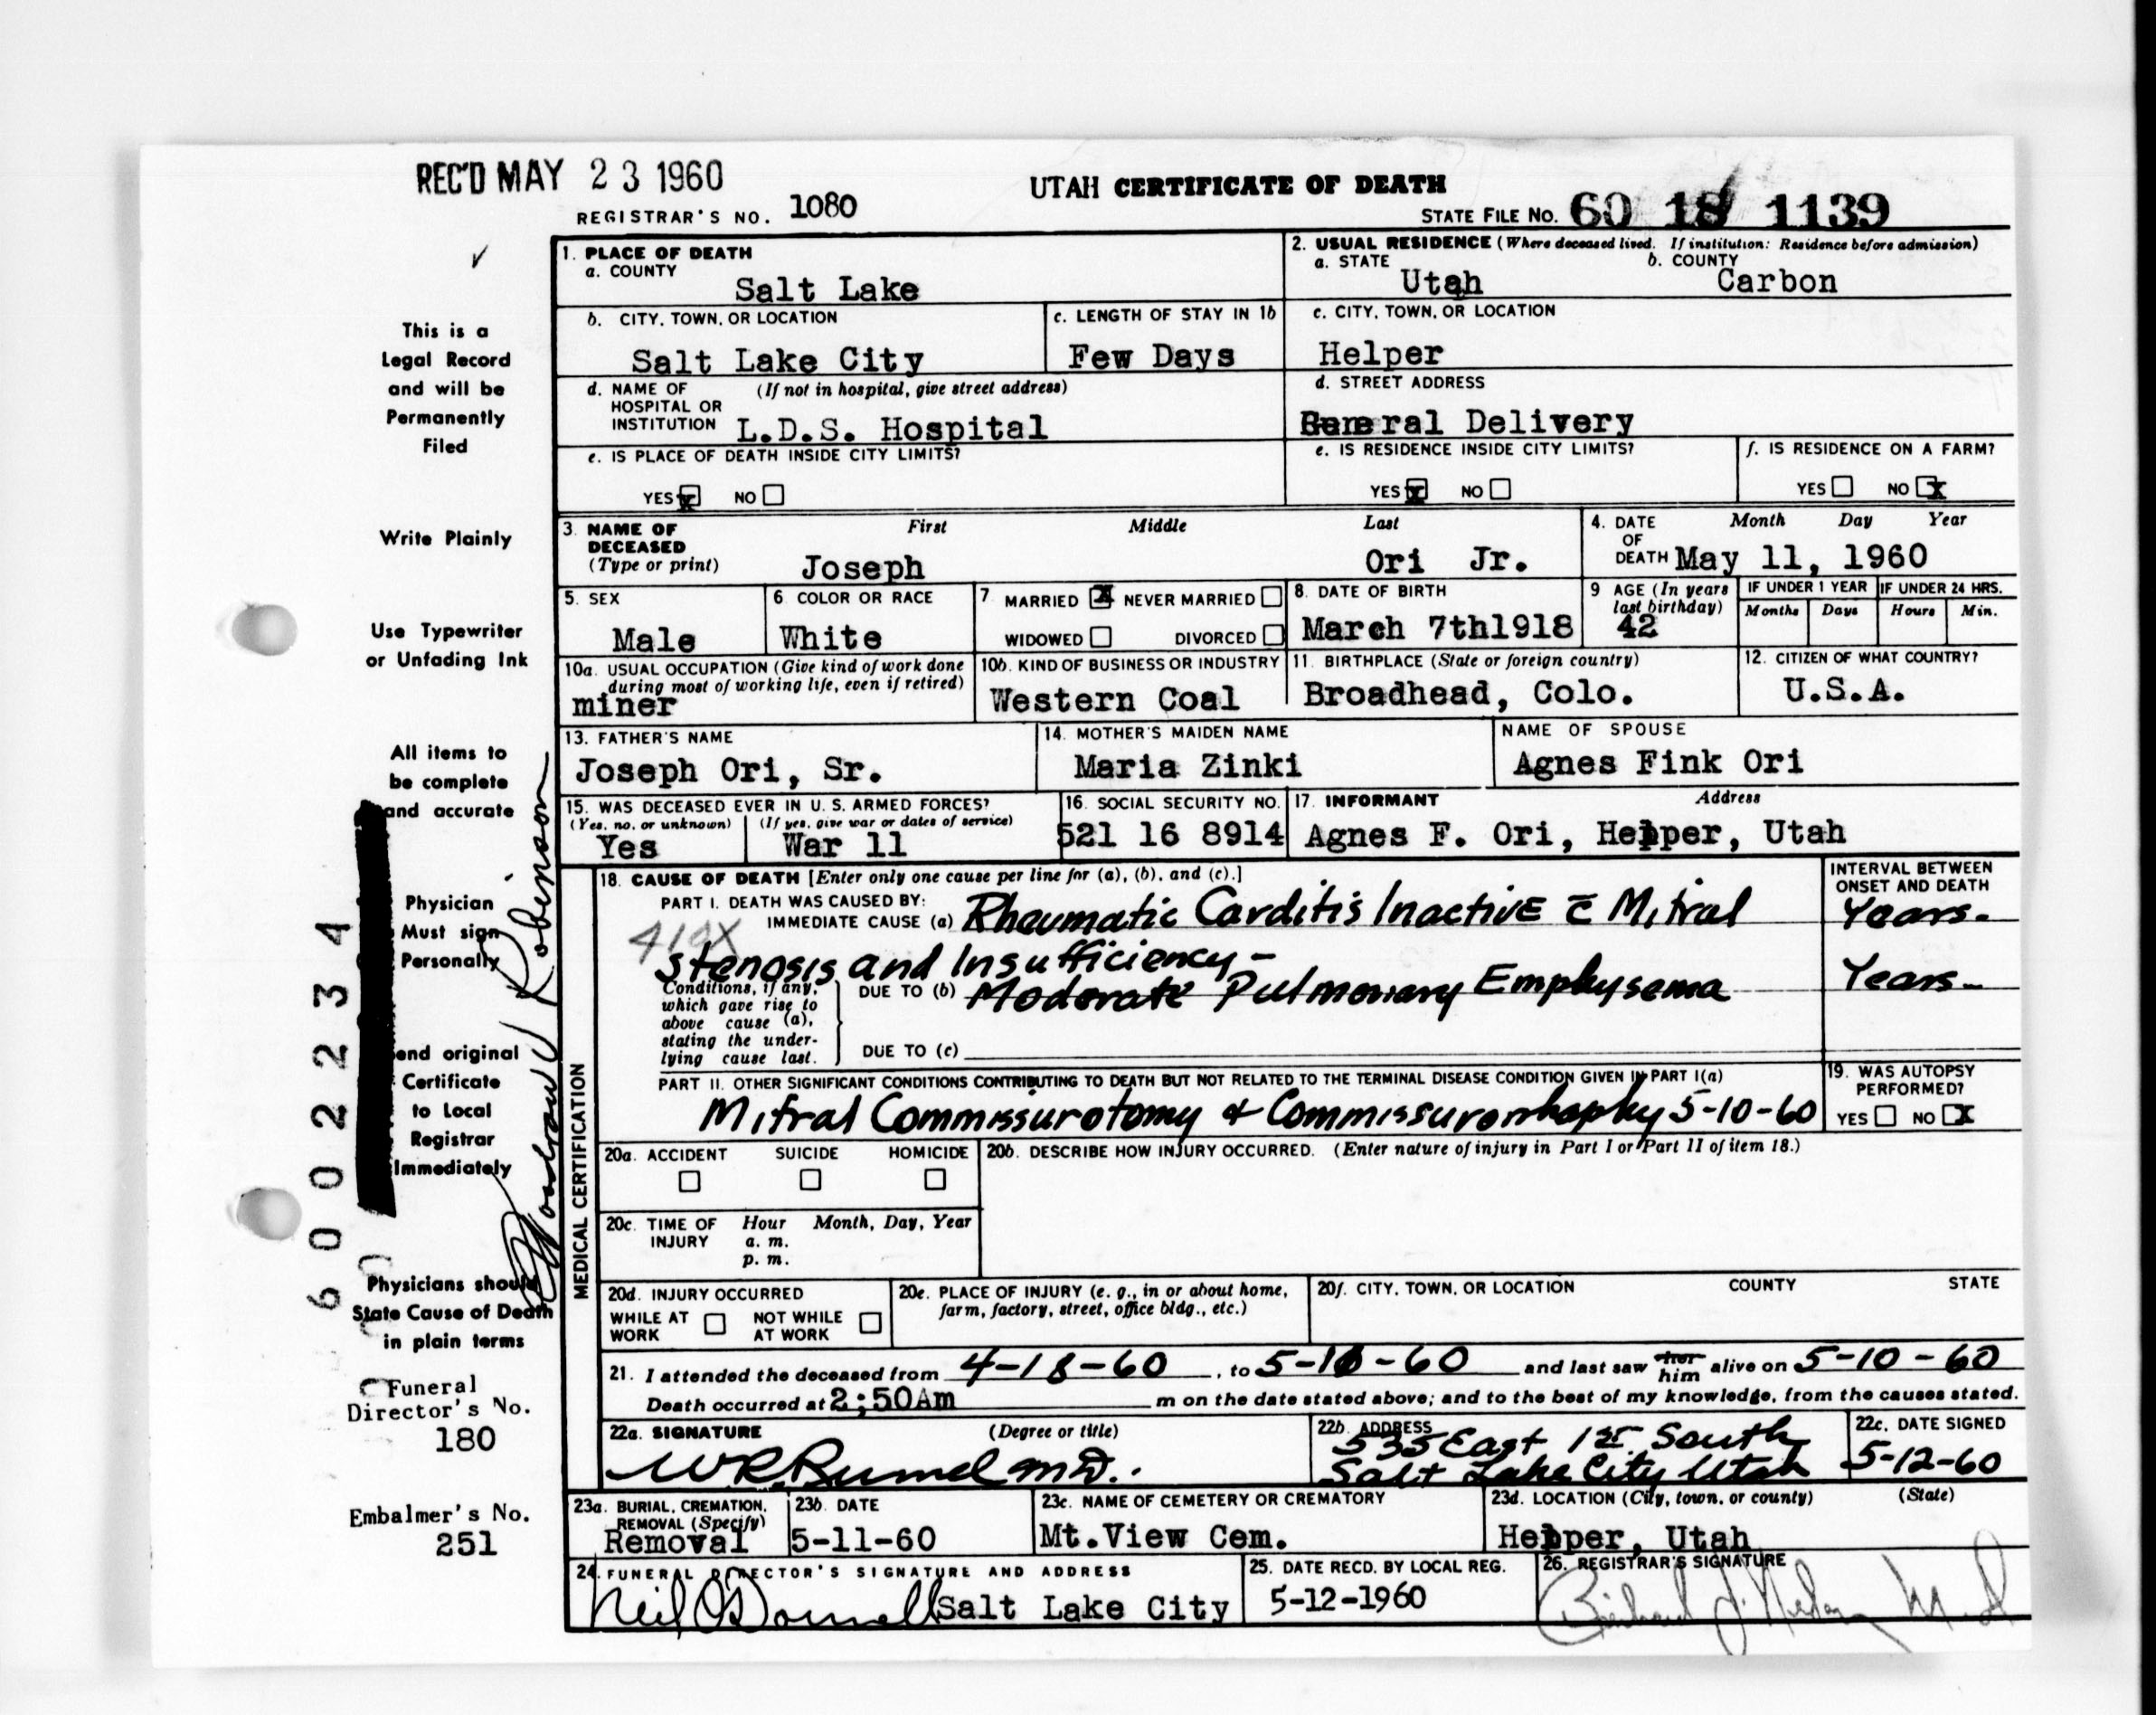 REC'D MAY 23 1960
REGISTRAR'S NO. 1080
UTAH CERTIFICATE OF DEATH
STATE FILE NO. 60 18 1139
This is a
Legal Record
and will be
Permanently
Filed
Write Plainly
Use Typewriter
or Unfading Ink
All items to
be complete
and accurate
Physician
Must sign
Personally
end original
Certificate
to Local
Registrar
Immediately
Physicians should
State Cause of Death
in plain terms
Funeral
Director's No.
180
Embalmer's No.
251
6002234
Robinson
1. PLACE OF DEATH
a. COUNTY
Salt Lake
2. USUAL RESIDENCE (Where deceased lived. If institution: Residence before admission)
a. STATE b. COUNTY
Utah Carbon
b. CITY, TOWN, OR LOCATION
Salt Lake City
c. LENGTH OF STAY IN 1b
Few Days
c. CITY, TOWN, OR LOCATION
Helper
d. NAME OF (If not in hospital, give street address)
HOSPITAL OR
INSTITUTION L.D.S. Hospital
d. STREET ADDRESS
General Delivery
e. IS PLACE OF DEATH INSIDE CITY LIMITS?
YES x NO
e. IS RESIDENCE INSIDE CITY LIMITS?
YES x NO
f. IS RESIDENCE ON A FARM?
YES NO x
3. NAME OF
DECEASED
(Type or print)
First Middle Last
Joseph Ori Jr.
4. DATE Month Day Year
OF
DEATH May 11, 1960
5. SEX
Male
6. COLOR OR RACE
White
7. MARRIED x NEVER MARRIED
WIDOWED DIVORCED
8. DATE OF BIRTH
March 7th1918
9 AGE (In years
last birthday)
42
IF UNDER 1 YEAR IF UNDER 24 HRS.
Months Days Hours Min.
10a. USUAL OCCUPATION (Give kind of work done
during most of working life, even if retired)
miner
10b. KIND OF BUSINESS OR INDUSTRY
Western Coal
11. BIRTHPLACE (State or foreign country)
Broadhead, Colo.
12. CITIZEN OF WHAT COUNTRY?
U.S.A.
13. FATHER'S NAME
Joseph Ori, Sr.
14. MOTHER'S MAIDEN NAME
Maria Zinki
NAME OF SPOUSE
Agnes Fink Ori
15. WAS DECEASED EVER IN U. S. ARMED FORCES?
(Yes, no, or unknown) (If yes, give war or dates of service)
Yes War 11
16. SOCIAL SECURITY NO.
521 16 8914
17. INFORMANT Address
Agnes F. Ori, Helper, Utah
MEDICAL CERTIFICATION
18. CAUSE OF DEATH [Enter only one cause per line for (a), (b), and (c).]
INTERVAL BETWEEN
ONSET AND DEATH
PART I. DEATH WAS CAUSED BY:
IMMEDIATE CAUSE (a) Rheumatic Carditis Inactive c̄ Mitral Years.
410X
Stenosis and Insufficiency -
Conditions, if any,
which gave rise to
above cause (a),
stating the under-
lying cause last.
DUE TO (b) Moderate Pulmonary Emphysema Years -
DUE TO (c)
PART II. OTHER SIGNIFICANT CONDITIONS CONTRIBUTING TO DEATH BUT NOT RELATED TO THE TERMINAL DISEASE CONDITION GIVEN IN PART I(a)
Mitral Commissurotomy & Commissurorrhaphy 5-10-60
19. WAS AUTOPSY
PERFORMED?
YES NO x
20a. ACCIDENT SUICIDE HOMICIDE
20b. DESCRIBE HOW INJURY OCCURRED. (Enter nature of injury in Part I or Part II of item 18.)
20c. TIME OF Hour Month, Day, Year
INJURY a. m.
p. m.
20d. INJURY OCCURRED
WHILE AT NOT WHILE
WORK AT WORK
20e. PLACE OF INJURY (e. g., in or about home,
farm, factory, street, office bldg., etc.)
20f. CITY, TOWN, OR LOCATION COUNTY STATE
21. I attended the deceased from 4-18-60, to 5-10-60 and last saw her him alive on 5-10-60
Death occurred at 2:50Am m on the date stated above; and to the best of my knowledge, from the causes stated.
22a. SIGNATURE (Degree or title)
W R Rumel M.D.
22b. ADDRESS
535 East 1st South
Salt Lake City Utah
22c. DATE SIGNED
5-12-60
23a. BURIAL, CREMATION,
REMOVAL (Specify)
Removal
23b. DATE
5-11-60
23c. NAME OF CEMETERY OR CREMATORY
Mt.View Cem.
23d. LOCATION (City, town, or county) (State)
Helper, Utah
24. FUNERAL DIRECTOR'S SIGNATURE AND ADDRESS
Neil O'Donnell Salt Lake City
25. DATE RECD. BY LOCAL REG.
5-12-1960
26. REGISTRAR'S SIGNATURE